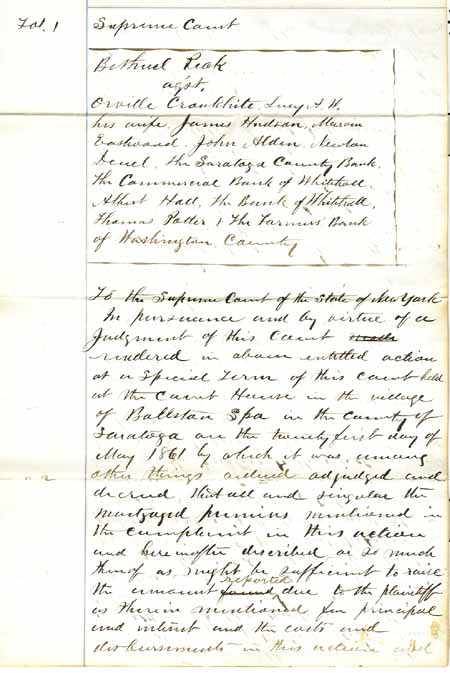 Fol. 1
Supreme Court
Bethuel Peck
agst.
Orville Cronkhite, Lucy A. W.
his wife, James Hudson, Marvin
Eastwood, John Alden, Newton
Deuel, the Saratoga County Bank,
the Commercial Bank of Whitehall,
Albert Hall, the Bank of Whitehall,
Thomas Potter & The Farmers Bank
of Washington County
To the Supreme Court of the State of New York
In pursuance and by virtue of a
Judgment of this Court made
rendered in above entitled action
at a Special Term of this Court held
at the Court House in the village
of Ballston Spa in the County of
Saratoga on the twenty first day of
May 1861 by which it was among
" 2
other things ordered adjudged and
decreed that all and singular the
mortgaged premises mentioned in
the complaint in this action
and hereinafter described or so much
thereof as might be sufficient to raise
reported
the amount found due to the plaintiff
as therein mentioned for principal
and interest and the costs and
disbursements in this action and